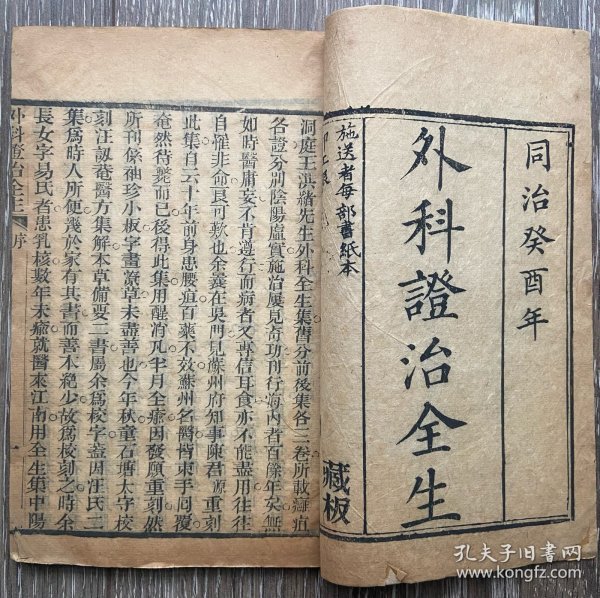 同治癸酉年
外科證治全生
施送者每部書紙本
藏板
洞庭王洪緒先生外科全生集舊分前後集各三卷所載癰疽
各證分別陰陽虛實施治屢見奇功刊行海內者百餘年矣無
如時醫庸妄不肯遵行而病者又專信耳食亦不能盡用往往
自惟非命良可歎也余曩在吳門見蘇州府知事陳君源重刻
此集自云十年前身患腰疽百藥不效蘇州名醫皆束手同覆
奄然待斃而已後得此集用醒消丸半月全瘉因發願重刻然
所刊係袖珍小板字畫潦草未盡善也今年秋童石塘太守校
刻汪訒菴醫方集解本草備要二書屬余爲校字蓋因汪氏二
集爲時人所便幾於家有其書而善本絶少故爲校刻之時余
長女字易氏者患乳核數年未瘉就醫來江南用全生集中陽
外科證治全生 序 一
孔夫子旧书网
www.kongfz.com